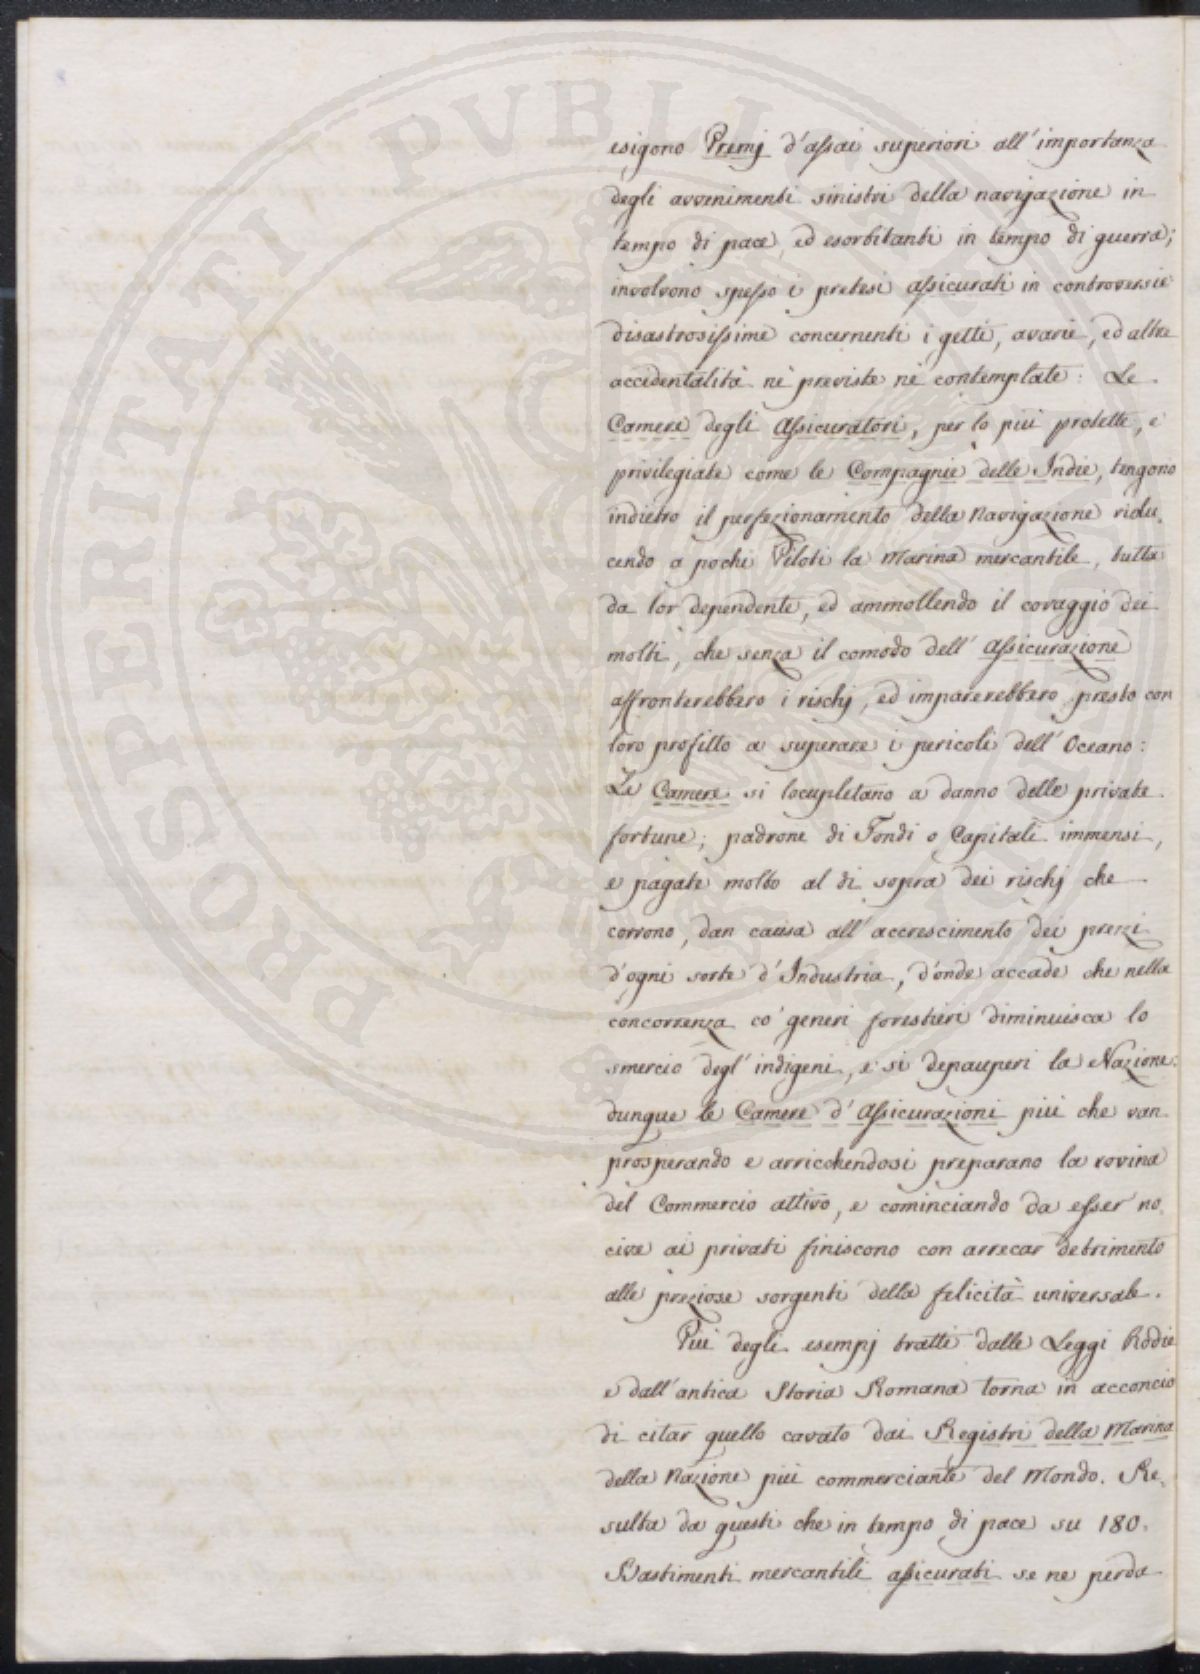 esigono Premj d'assai superiori all'importanza
degli avvenimenti sinistri della navigazione in
tempo di pace, ed esorbitanti in tempo di guerra;
involvono spesso i pretesi assicurati in controversie
disastrosissime concernenti i getti, avarie, ed altre
accidentalità nè previste nè contemplate: Le
Camere degli Assicuratori, per lo più protette, e
privilegiate come le Compagnie delle Indie, tengono
indietro il perfezionamento della Navigazione ridu,
cendo a pochi Piloti la Marina mercantile, tutta
da lor dependente, ed ammollendo il coraggio dei
molti, che senza il comodo dell'Assicurazione
affronterebbero i rischj, ed imparerebbero presto con
loro profitto a superare i pericoli dell'Oceano:
Le Camere si locupletano a danno delle private
fortune; padrone di Fondi o Capitali immensi,
e pagate molto al di sopra dei rischj che
corrono, dan causa all'accrescimento dei prezzi
d'ogni sorte d'Industria, d'onde accade che nella
concorrenza co' generi forestieri diminuisca lo
smercio degl'indigeni, e si depauperi la Nazione:
dunque le Camere d'Assicurazioni più che van
prosperando e arricchendosi preparano la rovina
del Commercio attivo, e cominciando da esser no,
cive ai privati finiscono con arrecar detrimento
alle preziose sorgenti della felicità universale.
Più degli esempj tratti dalle Leggi Rodie
e dall'antica Storia Romana torna in acconcio
di citar quello cavato dai Registri della Marina
della Nazione più commerciante del Mondo. Re,
sulta da questi che in tempo di pace su 180.
Bastimenti mercantili assicurati se ne perda
PROSPERITATI PUBLICAE